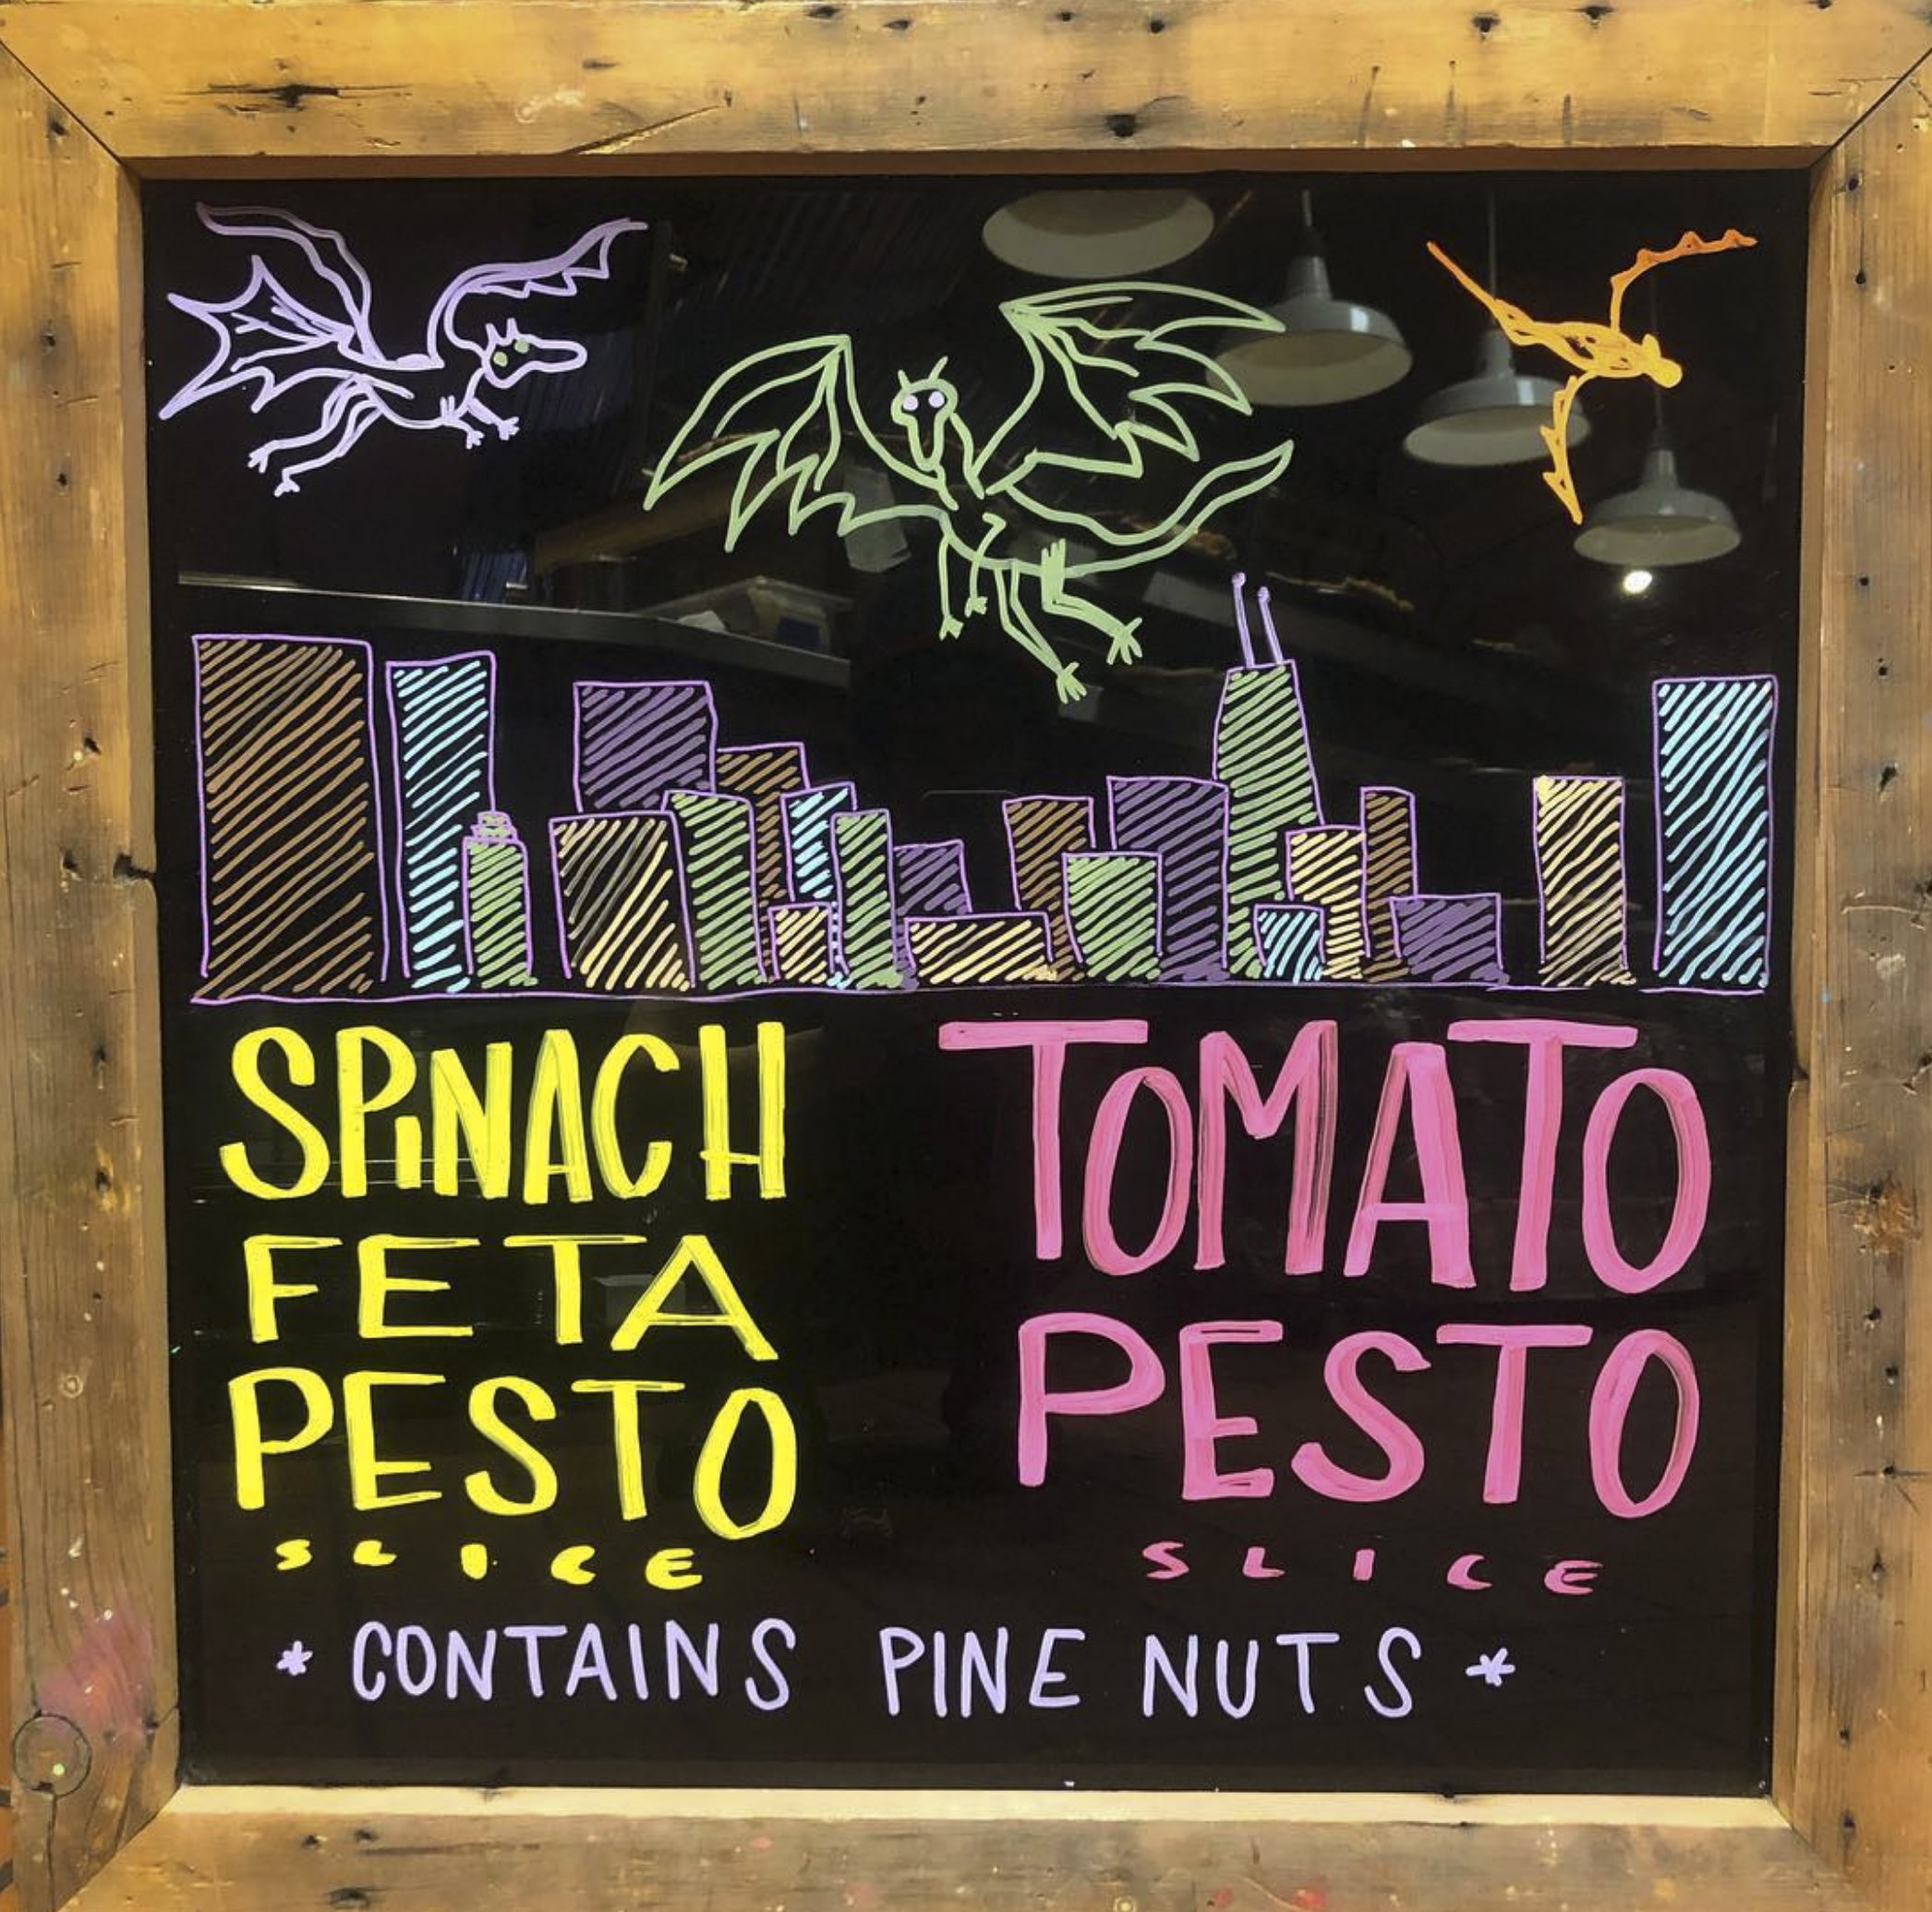 SPiNACH
FETA
PESTO
SLICE
TOMATO
PESTO
SLICE
* CONTAINS PINE NUTS *